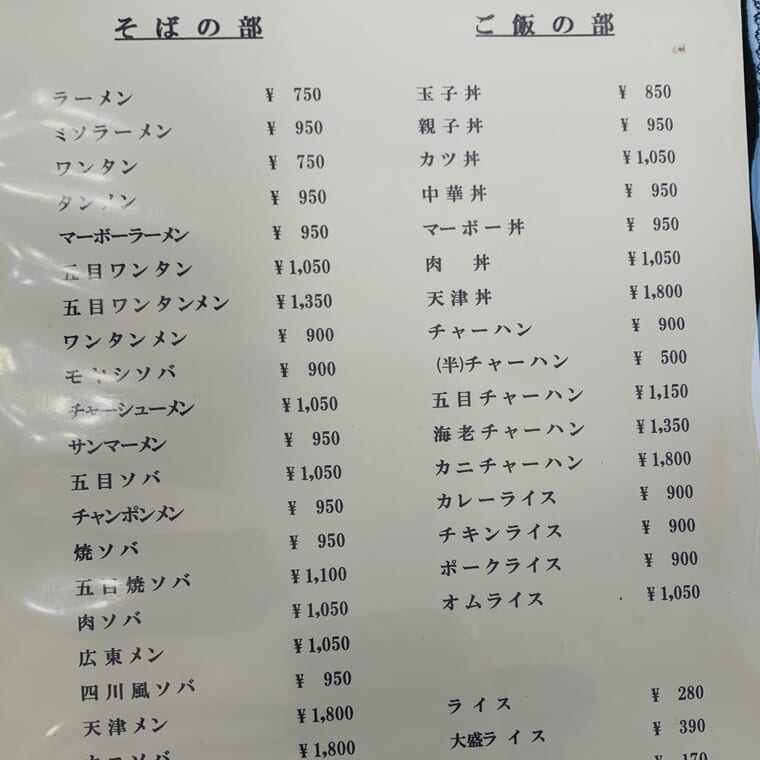 そばの部
ラーメン ¥ 750
ミソラーメン ¥ 950
ワンタン ¥ 750
タンメン ¥ 950
マーボーラーメン ¥ 950
五目ワンタン ¥1,050
五目ワンタンメン ¥1,350
ワンタンメン ¥ 900
モヤシソバ ¥ 900
チャーシューメン ¥1,050
サンマーメン ¥ 950
五目ソバ ¥1,050
チャンポンメン ¥ 950
焼ソバ ¥ 950
五目焼ソバ ¥1,100
肉ソバ ¥1,050
広東メン ¥1,050
四川風ソバ ¥ 950
天津メン ¥1,800
カニソバ ¥1,800
ご飯の部
玉子丼 ¥ 850
親子丼 ¥ 950
カツ丼 ¥1,050
中華丼 ¥ 950
マーボー丼 ¥ 950
肉 丼 ¥1,050
天津丼 ¥1,800
チャーハン ¥ 900
(半)チャーハン ¥ 500
五目チャーハン ¥1,150
海老チャーハン ¥1,350
カニチャーハン ¥1,800
カレーライス ¥ 900
チキンライス ¥ 900
ポークライス ¥ 900
オムライス ¥1,050
ライス ¥ 280
大盛ライス ¥ 390
¥ 170